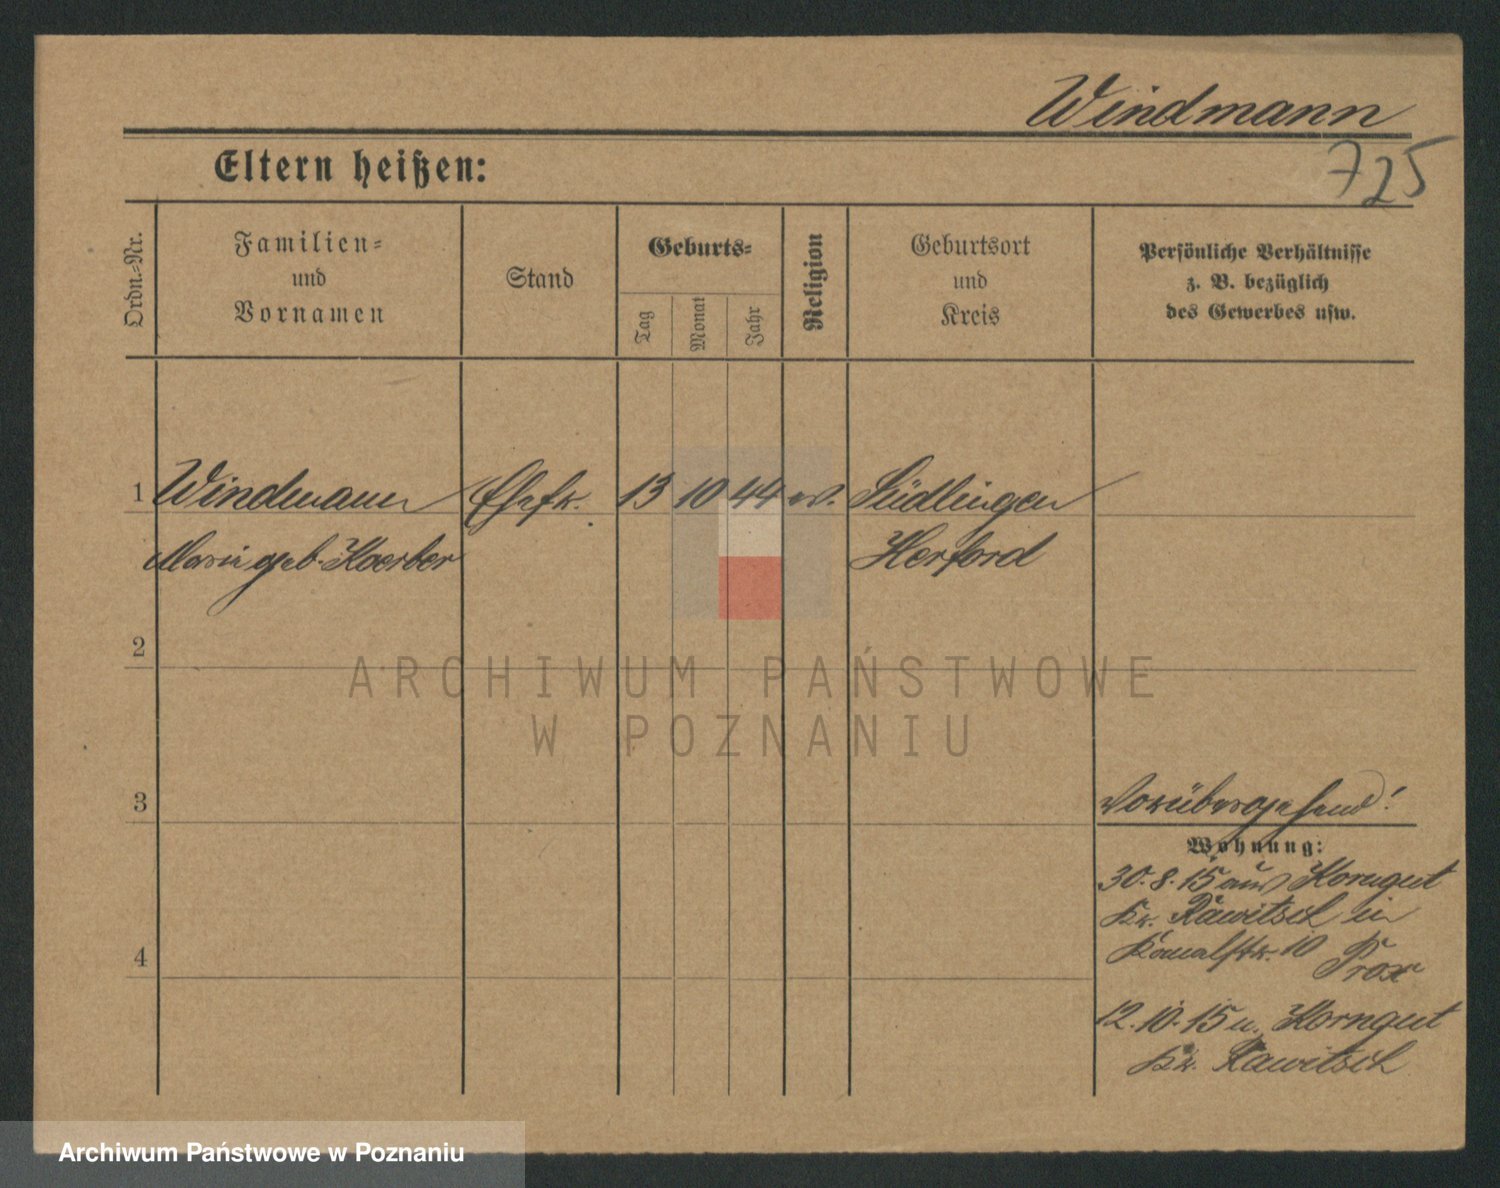 Windmann
725
Eltern heißen:
Ordn.=Nr.
Familien=
und
Vornamen
Stand
Geburts=
Tag
Monat
Jahr
Religion
Geburtsort
und
Kreis
Persönliche Verhältnisse
z. B. bezüglich
des Gewerbes usw.
1 Windmann Ehefr. 13 10 44 ev. Südlingen
Marie geb. Koerber Herford
2
ARCHIWUM PAŃSTWOWE
W POZNANIU
3
Vorübergehend!
Wohnung:
30.8.15 aus Korngut
Kr. Rawitsch in
10
4
12.10.15 n. Korngut
Kr. Rawitsch
Archiwum Państwowe w Poznaniu